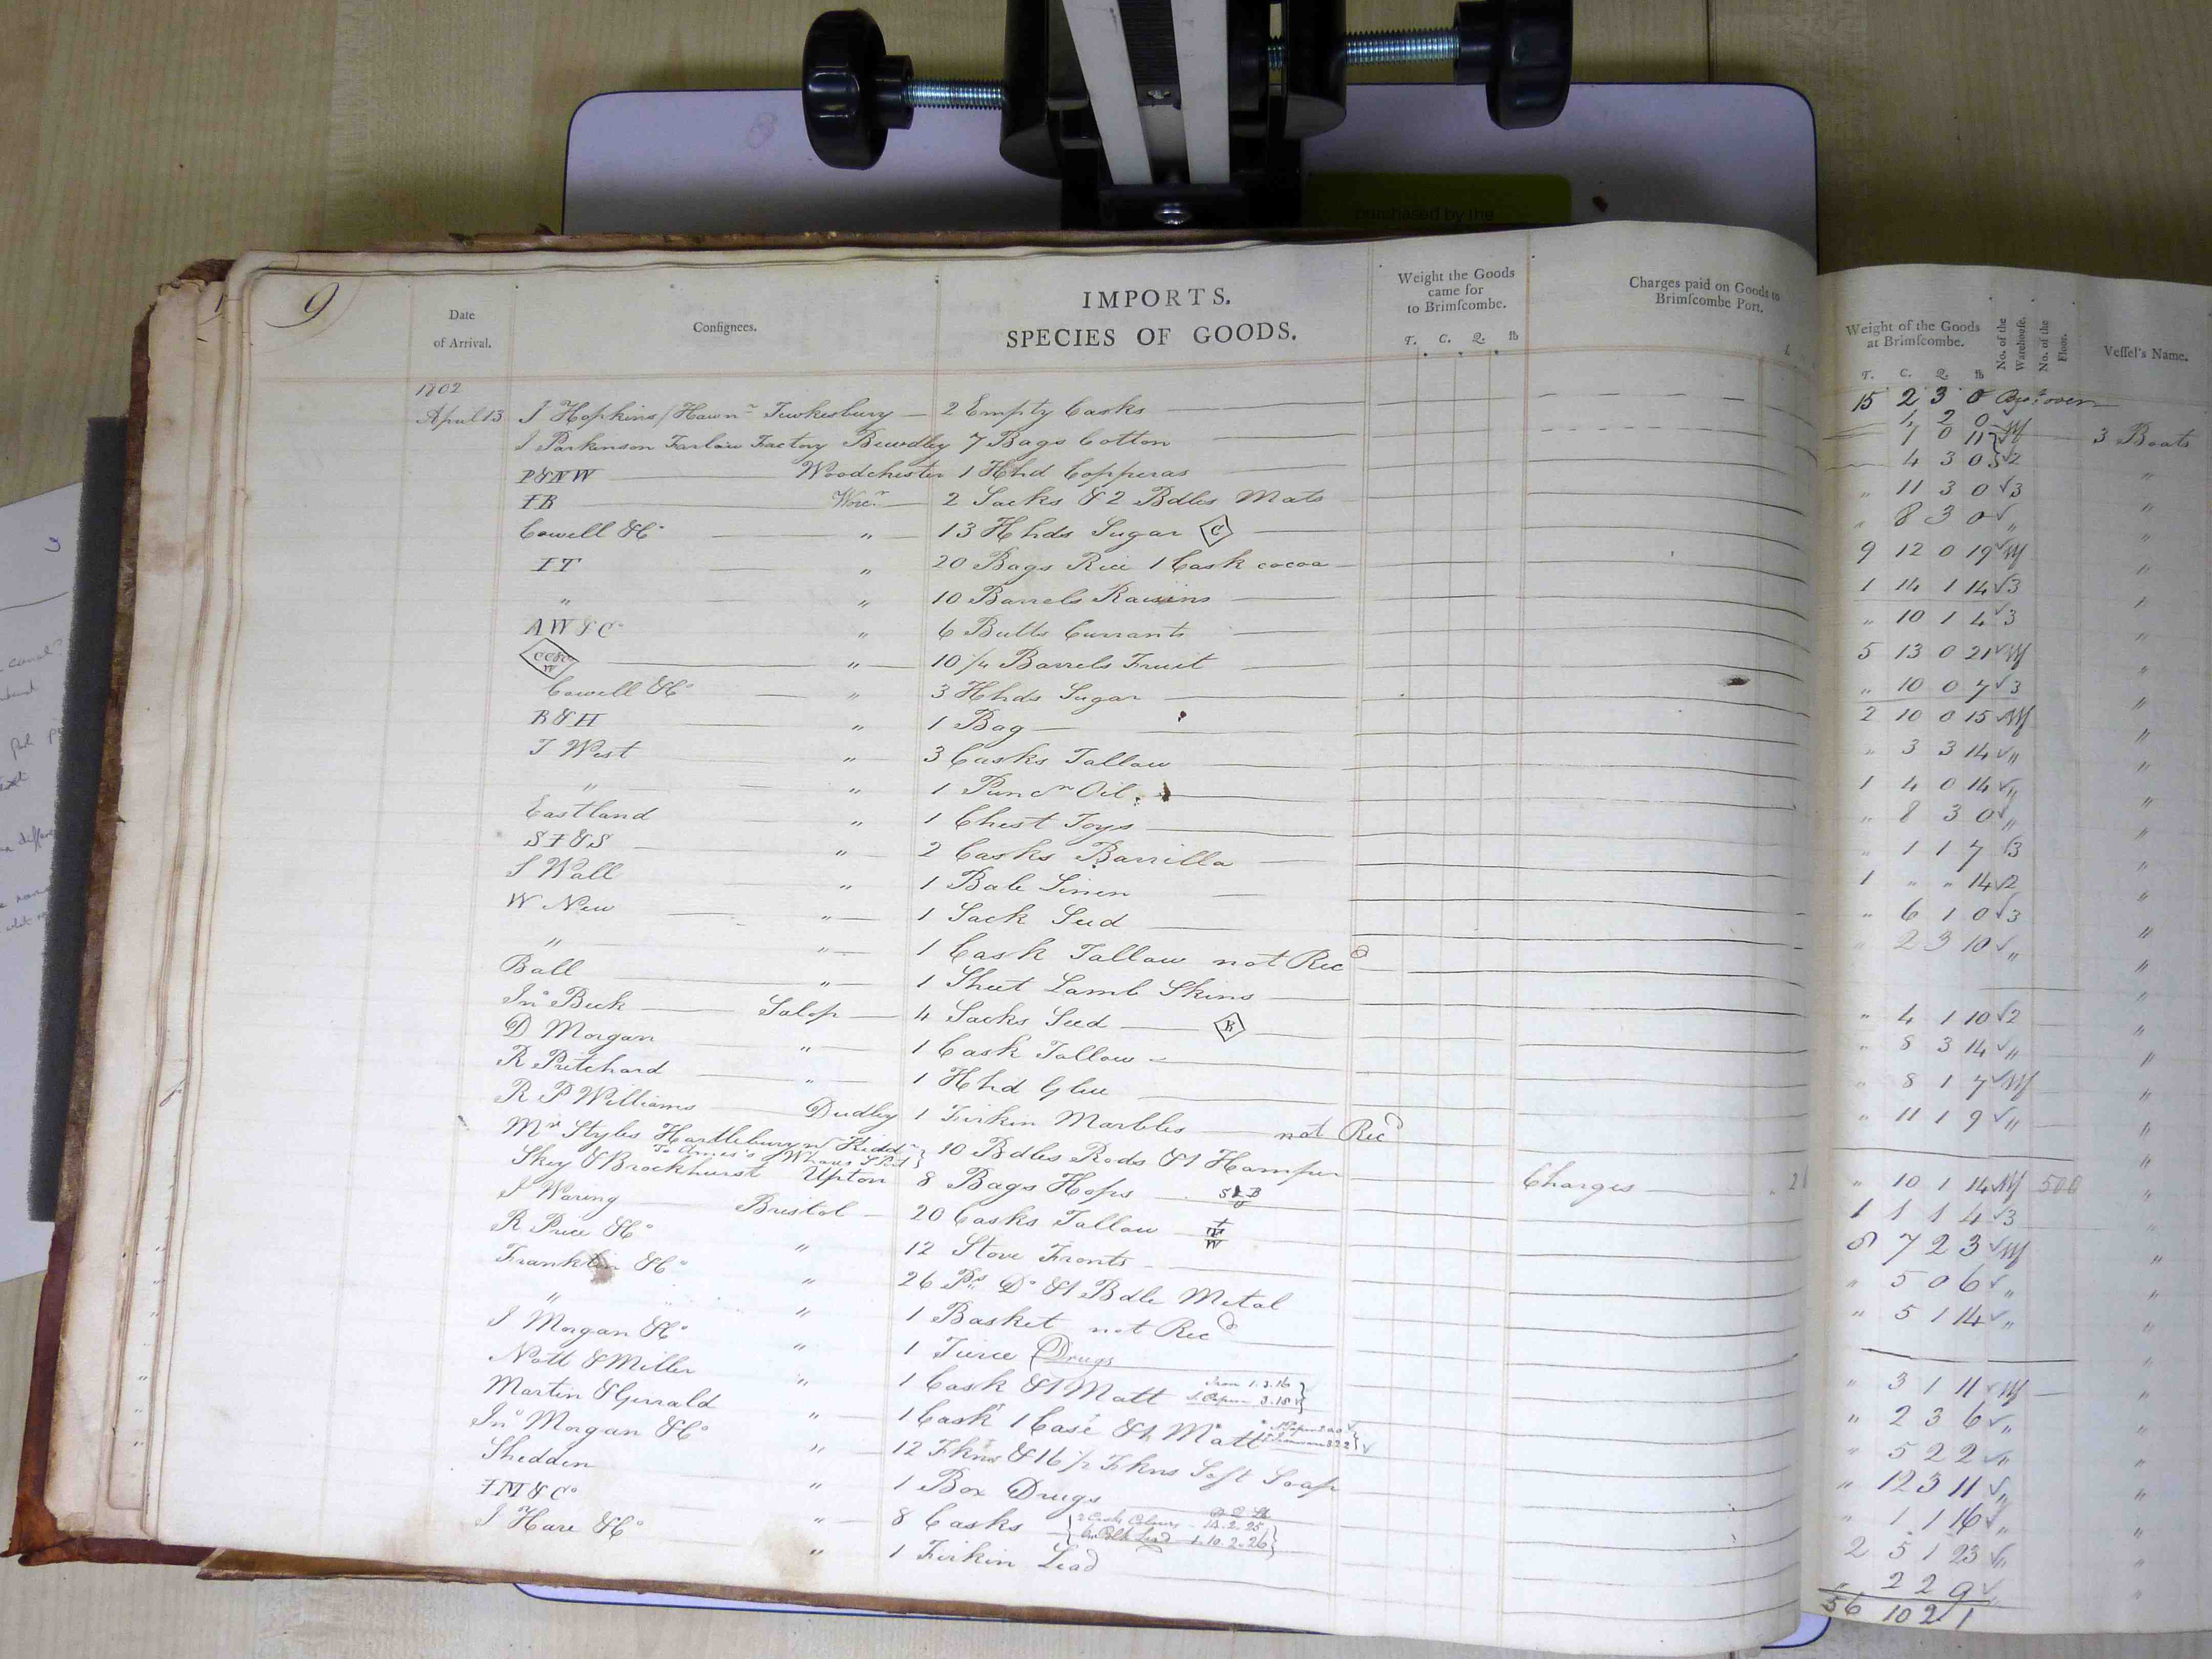 purchased by the
9
Date of Arrival.
Consignees.
IMPORTS.
SPECIES OF GOODS.
Weight the Goods came for to Brimscombe.
T. C. Q. lb
Charges paid on Goods to Brimscombe Port.
Weight of the Goods at Brimscombe.
T. C. Q. lb
No. of the Warehouse.
No. of the Floor.
Vessel's Name.
15 2 3 0
1802
April 13 J Hopkins / Hawn Tewkesbury 2 Empty Casks 1 2 0
J Parkinson Farlow Factory Bewdley 7 Bags Cotton 7 0 11 3 Boats
P&NW Woodchester 1 Hhd Copperas 4 3 0 2 "
IB Worc.r 2 Sacks & 2 Bdles Mats " 11 3 0 3 "
Cowell & Co " 13 Hhds Sugar C " 8 3 0 " "
IT " 20 Bags Rice 1 Cask cocoa 9 12 0 19 "
" " 10 Barrels Raisins 1 14 1 14 3 "
AW&Co " 6 Butts Currants " 10 1 4 3 "
CC&Co W " 10 1/4 Barrels Fruit 5 13 0 21 "
Cowell & Co " 3 Hhds Sugar " 10 0 7 3 "
R&H " 1 Bag 2 10 0 15 "
T West " 3 Casks Tallow " 3 3 14 " "
" " 1 Punc.n Oil 1 4 0 14 " "
Eastland " 1 Chest Toys " 8 3 0 " "
SI&S " 2 Casks Barrilla " 1 1 7 3 "
S Wall " 1 Bale Linen 1 " " 14 2 "
W New " 1 Sack Seed " 6 1 0 3 "
" " 1 Cask Tallow not Recd " 2 3 10 " "
Ball " 1 Sheet Lamb Skins "
Jno Beck Salop 4 Sacks Seed B " 4 1 10 2 "
D Morgan " 1 Cask Tallow " 8 3 14 " "
R Pritchard " 1 Hhd Glue " 8 1 7 "
R P Williams Dudley 1 Firkin Marbles not Recd " 11 1 9 " "
Mr Styles Hartlebury nr Kidd.r 10 Bdles Rods & 1 Hamper
Skey & Brockhurst Upton 8 Bags Hops S&B U Charges " 10 1 14 500 "
J Waring Bristol 20 Casks Tallow 1 1 1 4 3
R Price & Co " 12 Stove Fronts 8 7 2 3 "
Franklin & Co " 26 Ps Do & 1 Bdle Metal " 5 0 6 " "
" " 1 Basket not Recd " 5 1 14 " "
J Morgan & Co " 1 Tierce Drugs
Nott & Miller " 1 Cask & 1 Matt " 3 1 11
Martin & Gerrald " 1 Cask 1 Case & 1 Matt " 2 3 6 " "
Jno Morgan & Co " 12 Fkns & 16 1/2 Fkns Soft Soap " 5 2 2 " "
Shedden " 1 Box Drugs " 12 3 11 " "
IM&Co " 8 Casks 2 Casks Colours 14.2.25 " 1 1 16 " "
1.10.2.26
J Hare & Co " 1 Firkin Lead 2 5 1 23 " "
" 2 2 9
56 10 2 1